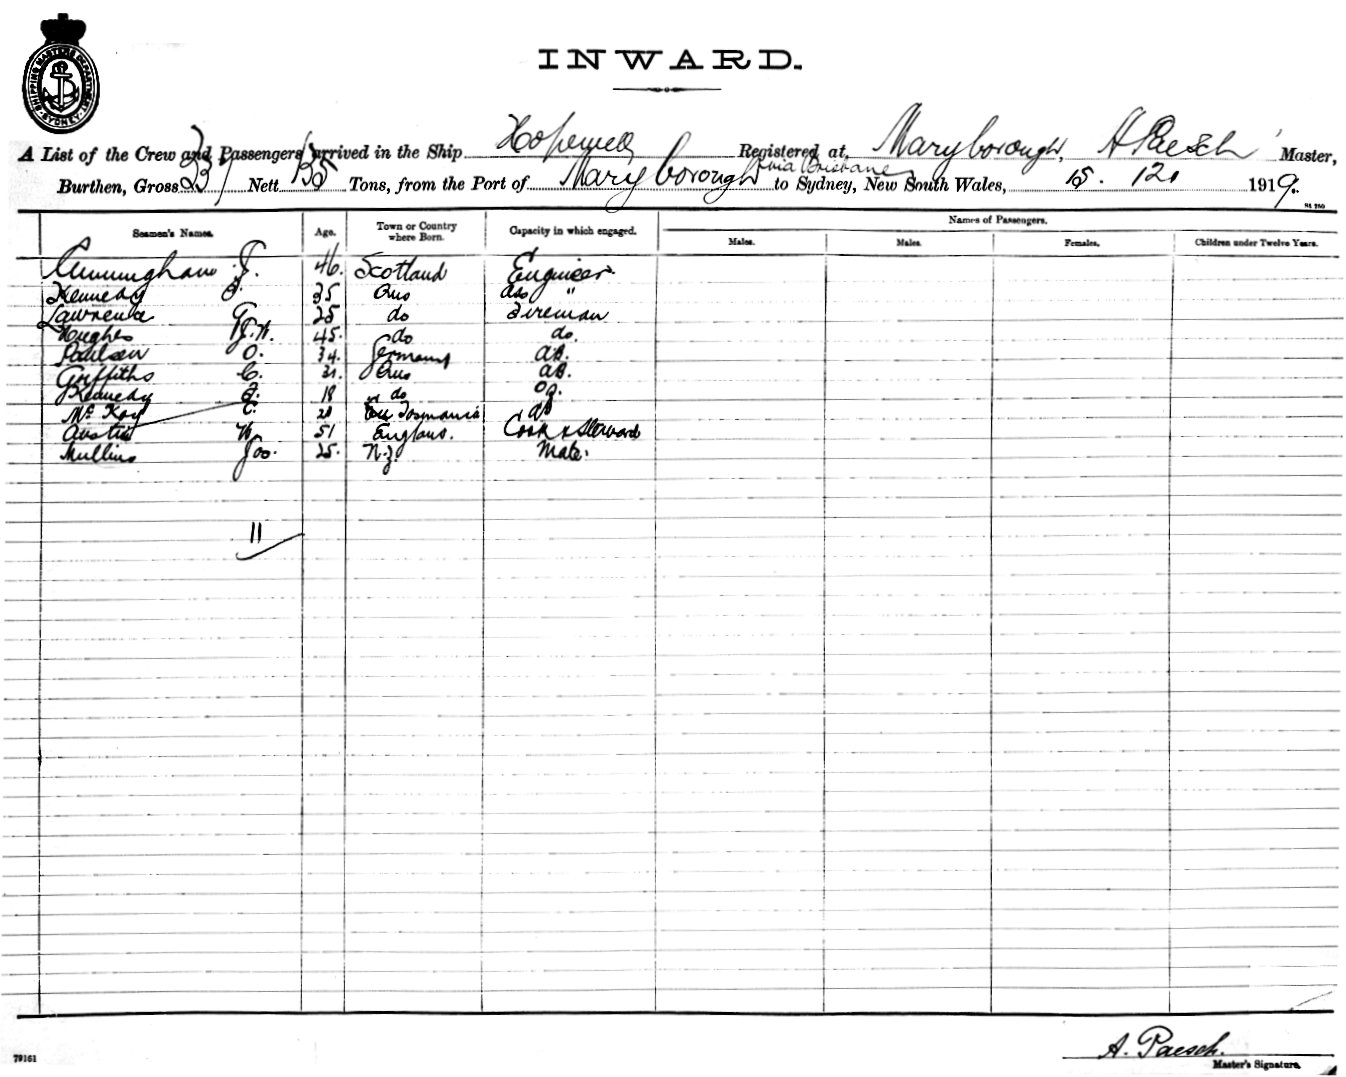 SHIPPING MASTERS DEPARTMENT SYDNEY
INWARD.
A List of the Crew and Passengers arrived in the Ship Hopewell Registered at, Maryborough, A Paesch Master,
Burthen, Gross Nett Tons, from the Port of Maryborough via Brisbane to Sydney, New South Wales, 15. 12. 1919.
Seamen's Names. Age. Town or Country where Born. Capacity in which engaged. Names of Passengers.
Males. Males. Females. Children under Twelve Years.
Cunningham J. 46. Scotland Engineer
Kennedy J. 35 Aus ass "
Lawrence G 25 do Fireman
Hughes J.W. 45. do do.
Paulsen O. 34. Germany AB.
Griffiths C. 21. Aus AB.
Kennedy J. 18 do OS.
Mc Kay C. 20 Tasmania AB
Austin W. 51 England. Cook & Steward
Mullins Jas. 25. N.Z. Mate.
11
79161
A. Paesch.
Master's Signature.